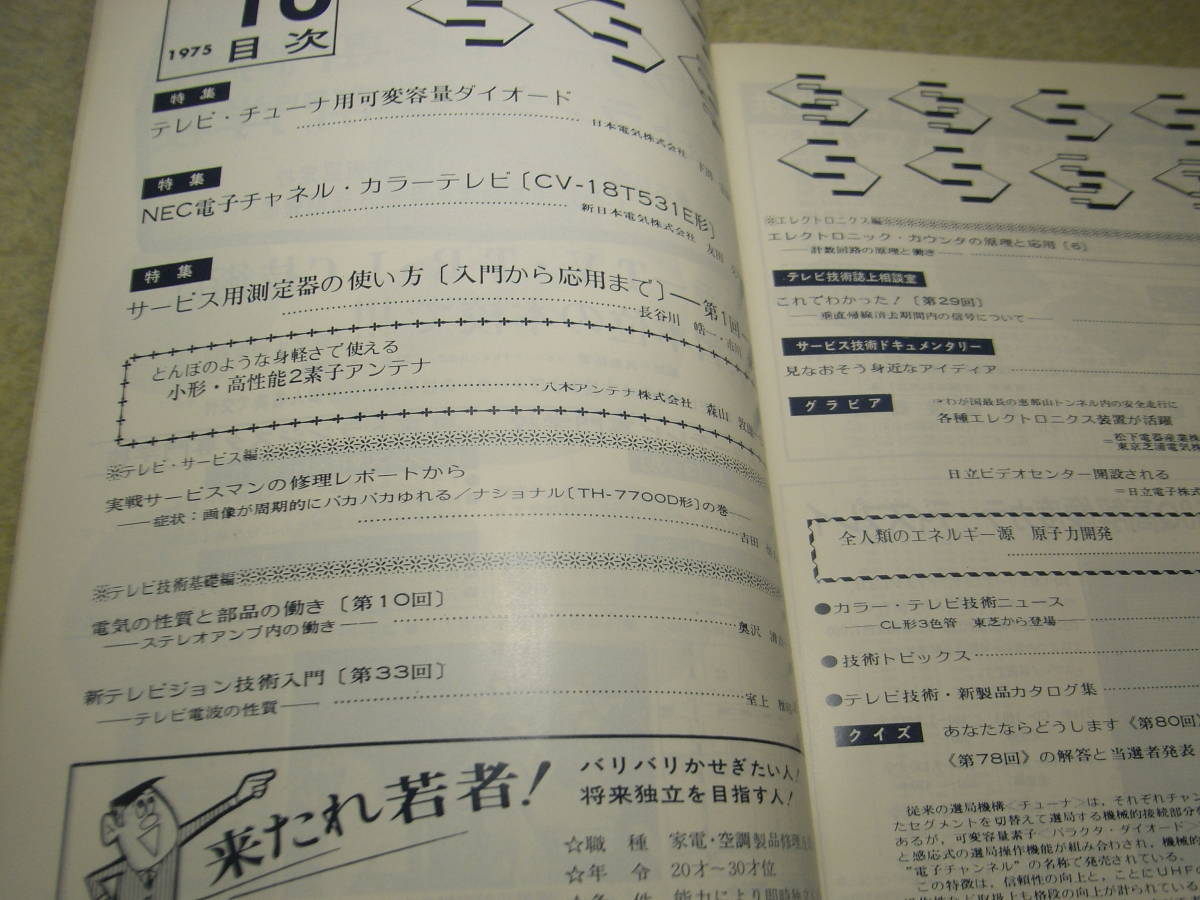 10
1975 目次
特集
テレビ・チューナ用可変容量ダイオード
日本電気株式会社
特集
NEC電子チャネル・カラーテレビ〔CV-18T531E形〕
新日本電気株式会社 友田
特集
サービス用測定器の使い方〔入門から応用まで〕—第1回—
長谷川 皓一・
とんぼのような身軽さで使える
小形・高性能2素子アンテナ
八木アンテナ株式会社 森山
※テレビ・サービス編
実戦サービスマンの修理レポートから
——症状:画像が周期的にパカパカゆれる/ナショナル〔TH-7700D形〕の巻——
吉田
※テレビ技術基礎編
電気の性質と部品の働き〔第10回〕
——ステレオアンプ内の働き——
奥沢
新テレビジョン技術入門〔第33回〕
——テレビ電波の性質——
室上
来たれ若者!
バリバリかせぎたい人!
将来独立を目指す人!
☆職 種 家電・空調製品修理
☆年 令 20才〜30才位
☆条 件 能力により即時
※エレクトロニクス編
エレクトロニック・カウンタの原理と応用〔6〕
——計数回路の原理と働き——
テレビ技術誌上相談室
これでわかった!〔第29回〕
——垂直帰線消去期間内の信号について——
サービス技術ドキュメンタリー
見なおそう身近なアイディア
グラビア
*わが国最長の恵那山トンネル内の安全走行に
各種エレクトロニクス装置が活躍
=松下電器産業株
東京芝浦電気株
日立ビデオセンター開設される
=日立電子株式
全人類のエネルギー源 原子力開発
●カラー・テレビ技術ニュース
——CL形3色管 東芝から登場——
●技術トピックス
●テレビ技術・新製品カタログ集
クイズ
あなたならどうします《第80回》
《第78回》の解答と当選者発表
従来の選局機構<チューナ>は,それぞれチャン
たセグメントを切替えて選局する機械的接続部分を
あるが,可変容量素子<バラクタ・ダイオード>
と感応式の選局操作機能が組み合わされ,機械的
"電子チャンネル"の名称で発売されている。
この特徴は,信頼性の向上と,ことにUHFの
操作性など取扱上も格段の向上が計られている